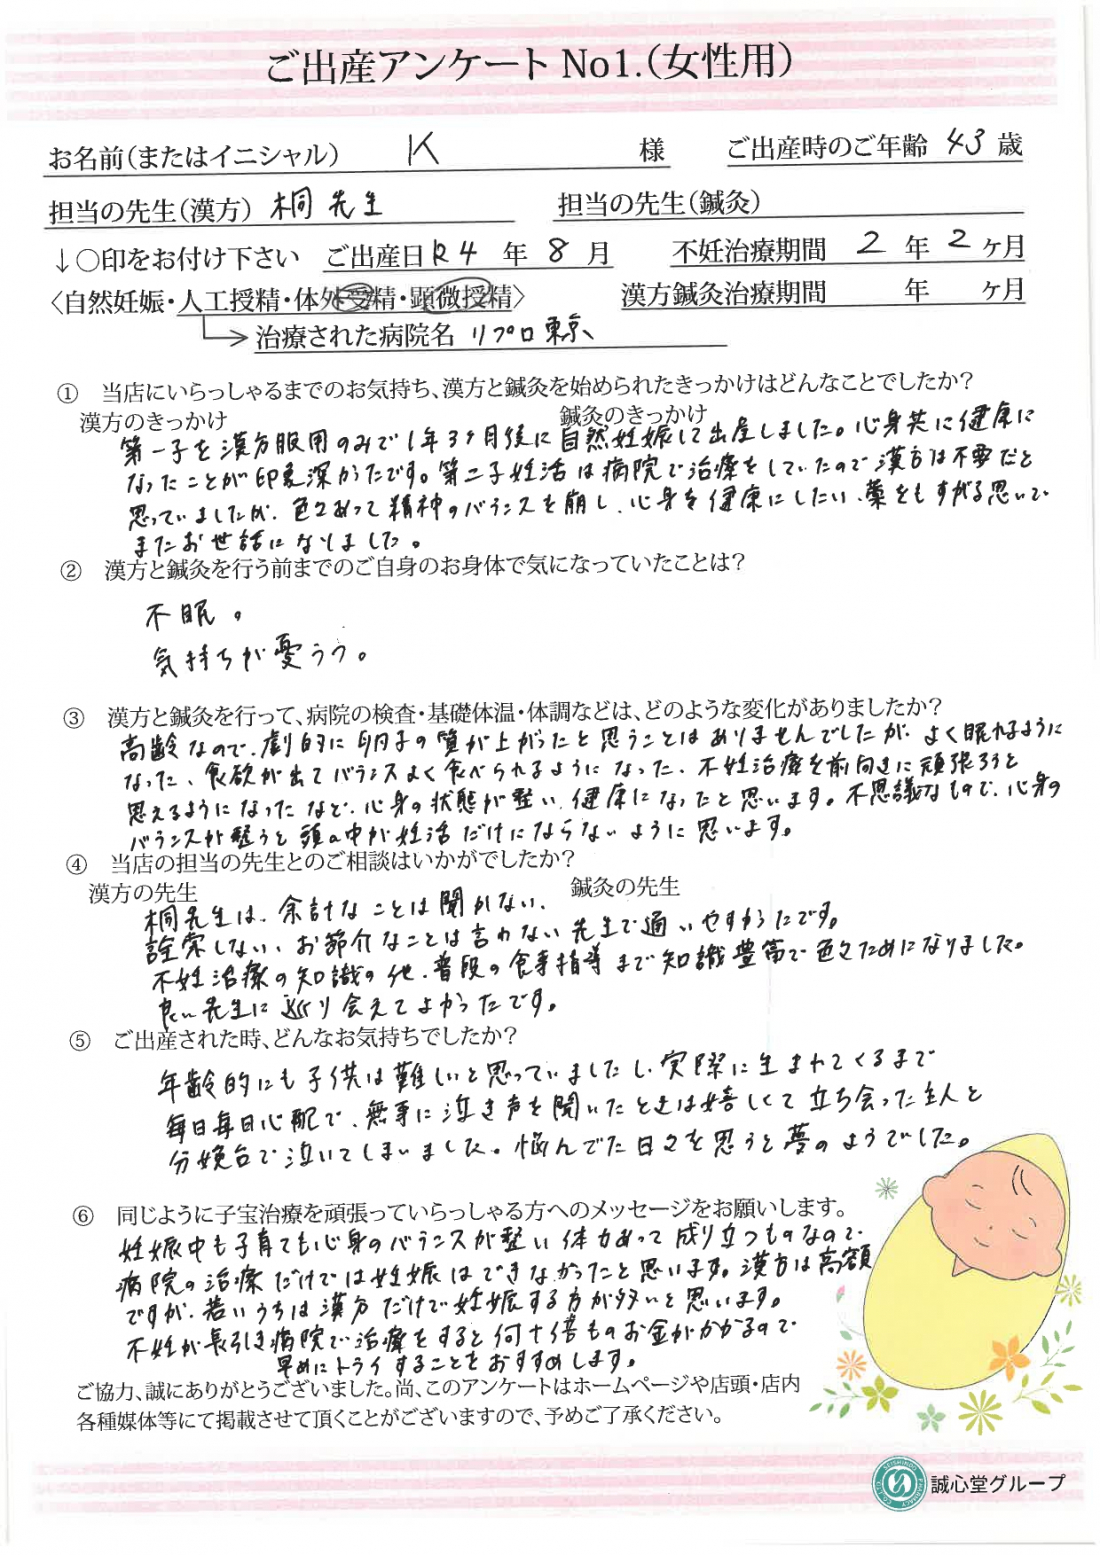 ご出産アンケート No1.(女性用)
お名前(またはイニシャル) K 様 ご出産時のご年齢 43 歳
担当の先生(漢方) 桐先生 担当の先生(鍼灸)
↓○印をお付け下さい ご出産日 R4 年 8 月 不妊治療期間 2 年 2 ヶ月
〈自然妊娠・人工授精・体外受精・顕微授精〉 漢方鍼灸治療期間 年 ヶ月
治療された病院名 リプロ東京
① 当店にいらっしゃるまでのお気持ち、漢方と鍼灸を始められたきっかけはどんなことでしたか?
漢方のきっかけ 鍼灸のきっかけ
第一子を漢方服用のみで1年3ヶ月後に自然妊娠して出産しました。心身共に健康に
なったことが印象深かったです。第二子妊活は病院で治療をしていたので漢方は不要だと
思っていましたが、色々あって精神のバランスを崩し、心身を健康にしたい、藁をもすがる思いで
またお世話になりました。
② 漢方と鍼灸を行う前までのご自身のお身体で気になっていたことは?
不眠。
気持ちが憂うつ。
③ 漢方と鍼灸を行って、病院の検査・基礎体温・体調などは、どのような変化がありましたか?
高齢なので、劇的に卵子の質が上がったと思うことはありませんでしたが、よく眠れるように
なった、食欲が出てバランスよく食べられるようになった、不妊治療を前向きに頑張ろうと
思えるようになったなど、心身の状態が整い、健康になったと思います。不思議なもので、心身の
バランスが整うと頭の中が妊活だけにならないように思います。
④ 当店の担当の先生とのご相談はいかがでしたか?
漢方の先生 鍼灸の先生
桐先生は、余計なことは聞かない、
詮索しない、お節介なことは言わない先生で通いやすかったです。
不妊治療の知識の他、普段の食事指導まで知識豊富で色々ためになりました。
良い先生に巡り会えてよかったです。
⑤ ご出産された時、どんなお気持ちでしたか?
年齢的にも子供は難しいと思っていましたし、実際に生まれてくるまで
毎日毎日心配で、無事に泣き声を聞いたときは嬉しくて立ち会った主人と
分娩台で泣いてしまいました。悩んでた日々を思うと夢のようでした。
⑥ 同じように子宝治療を頑張っていらっしゃる方へのメッセージをお願いします。
妊娠中も子育ても心身のバランスが整い体力あって成り立つものなので、
病院の治療だけでは妊娠はできなかったと思います。漢方は高額
ですが、若いうちは漢方だけで妊娠する方が多いと思います。
不妊が長引き病院で治療をすると何十倍ものお金がかかるので
早めにトライすることをおすすめします。
ご協力、誠にありがとうございました。尚、このアンケートはホームページや店頭・店内
各種媒体等にて掲載させて頂くことがございますので、予めご了承ください。
誠心堂グループ